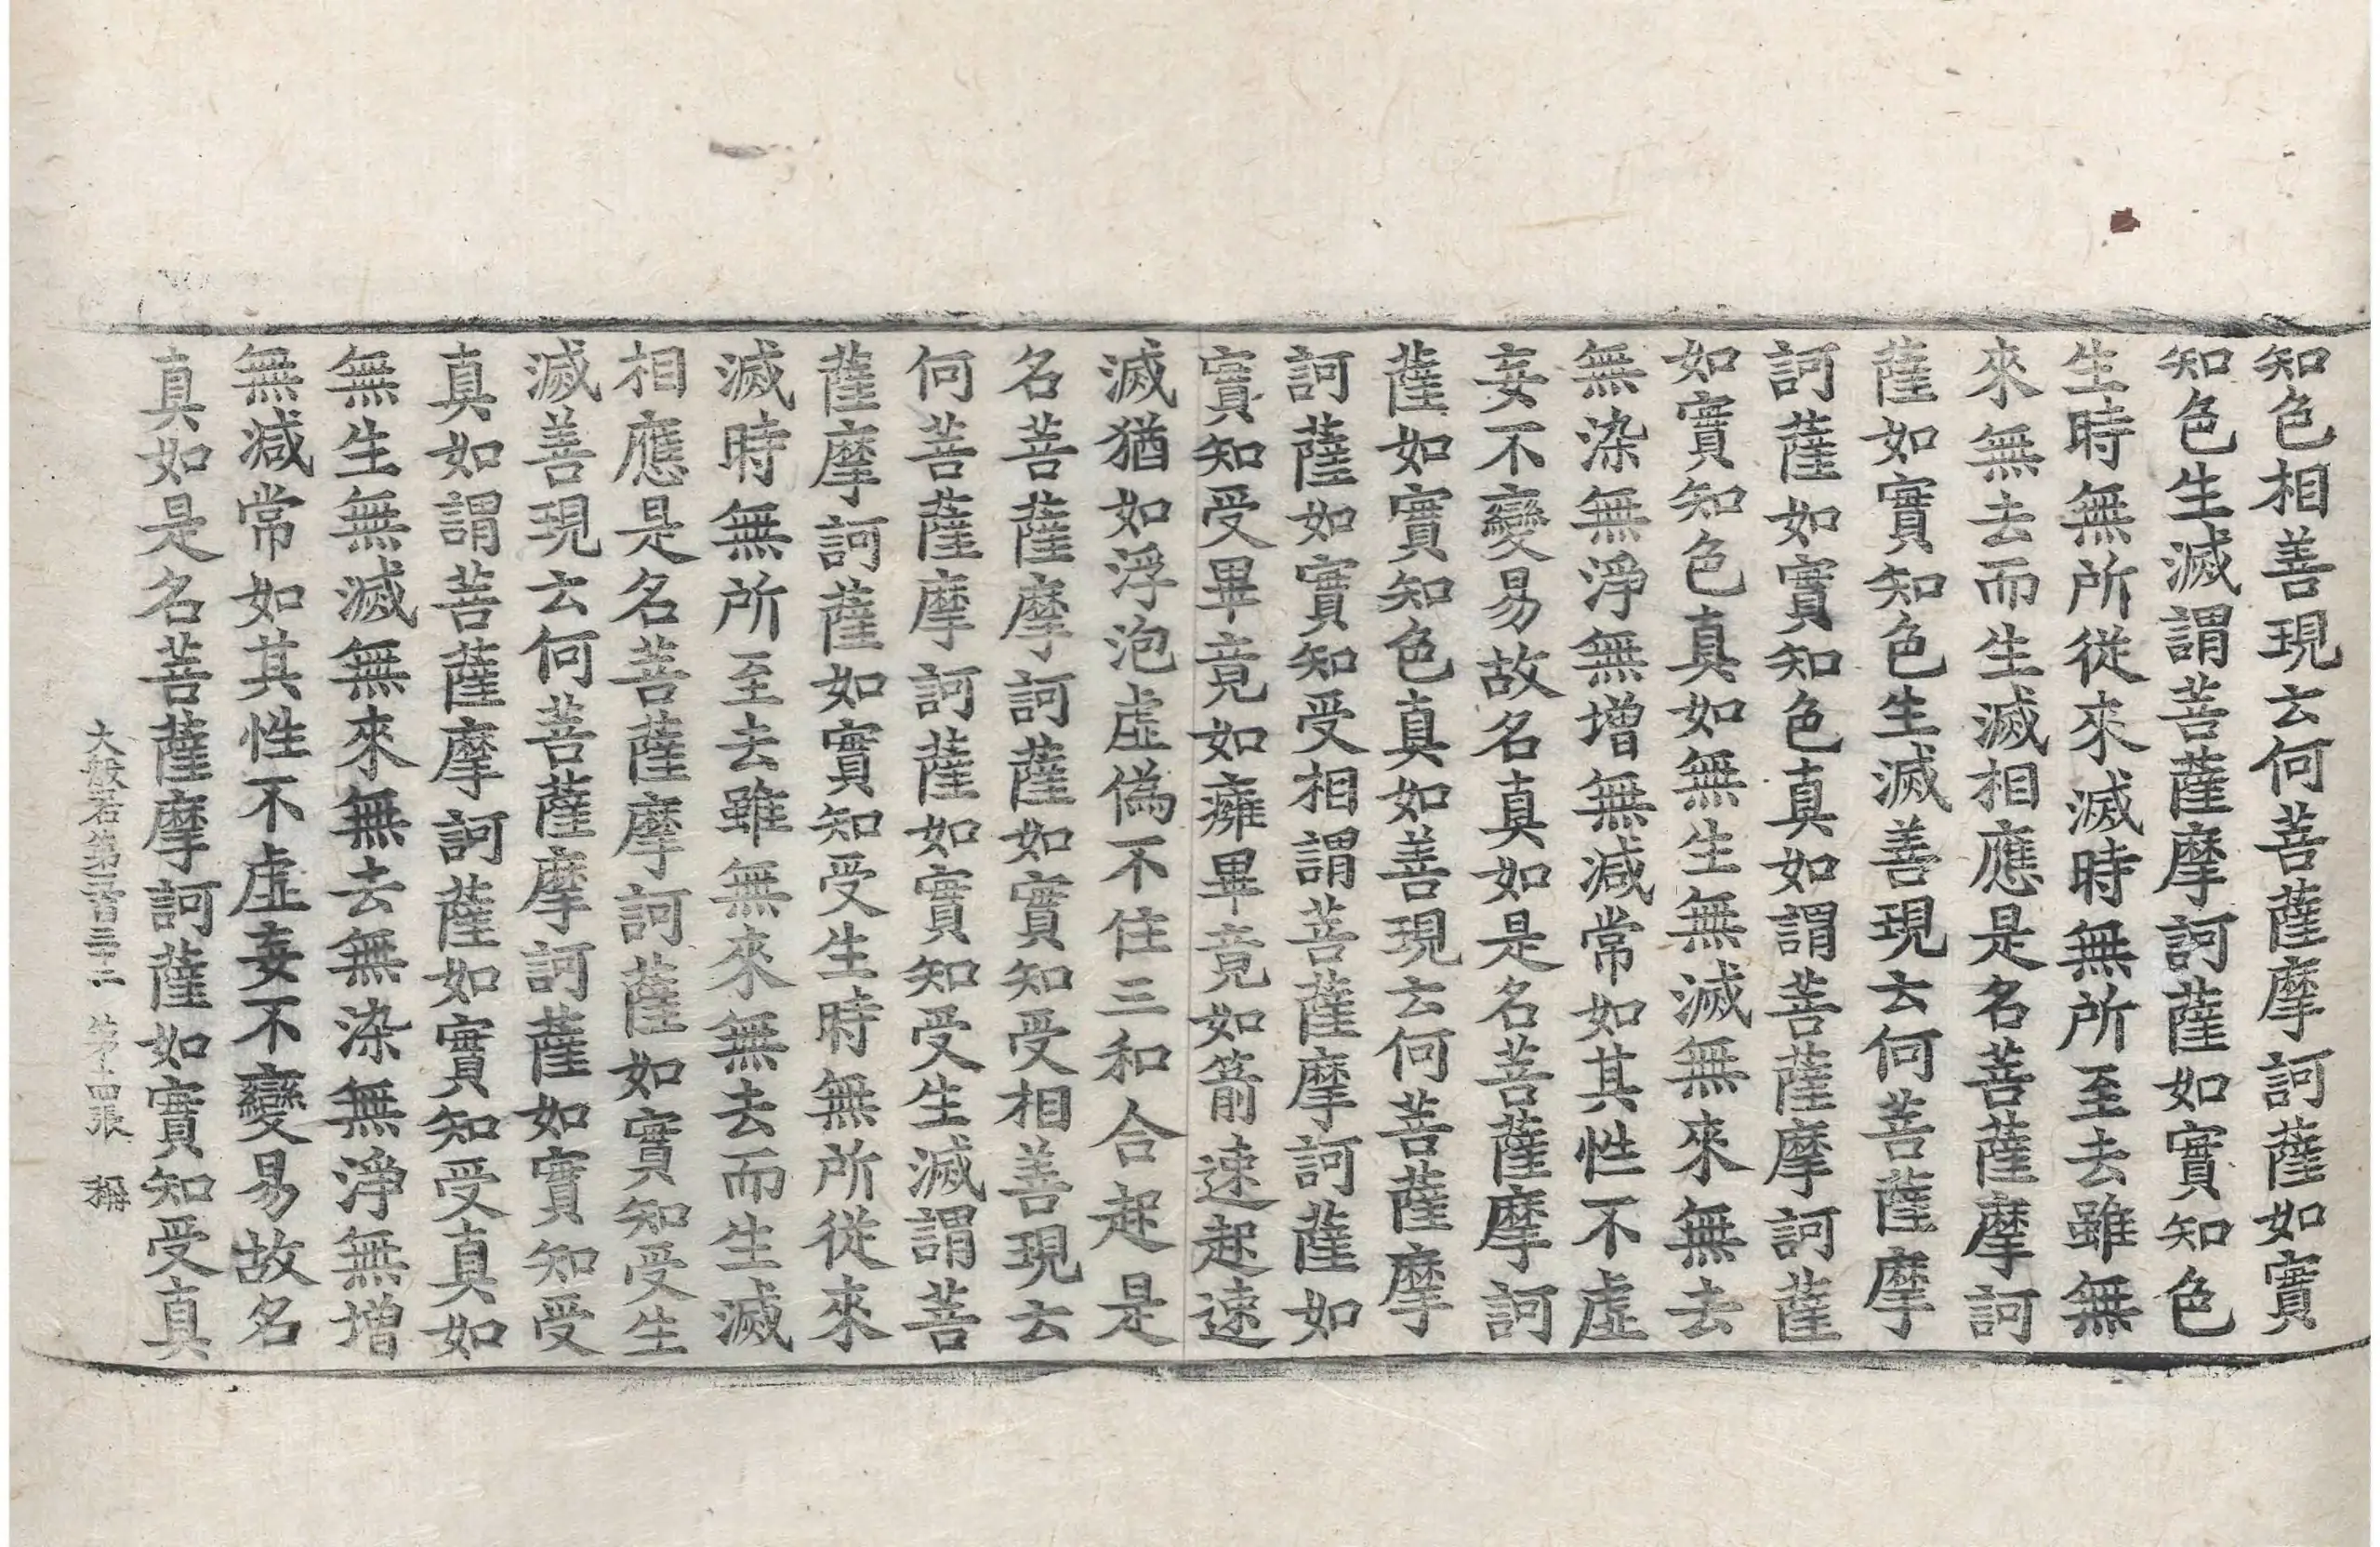 知色相善現云何菩薩摩訶薩如實
知色生滅謂菩薩摩訶薩如實知色
生時無所從來滅時無所至去雖無
來無去而生滅相應是名菩薩摩訶
薩如實知色生滅善現云何菩薩摩
訶薩如實知色真如謂菩薩摩訶薩
如實知色真如無生無滅無來無去
無染無淨無增無減常如其性不虛
妄不變易故名真如是名菩薩摩訶
薩如實知色真如善現云何菩薩摩
訶薩如實知受相謂菩薩摩訶薩如
實知受畢竟如癰畢竟如箭速起速
滅猶如浮泡虛偽不住三和合起是
名菩薩摩訶薩如實知受相善現云
何菩薩摩訶薩如實知受生滅謂菩
薩摩訶薩如實知受生時無所從來
滅時無所至去雖無來無去而生滅
相應是名菩薩摩訶薩如實知受生
滅善現云何菩薩摩訶薩如實知受
真如謂菩薩摩訶薩如實知受真如
無生無滅無來無去無染無淨無增
無減常如其性不虛妄不變易故名
真如是名菩薩摩訶薩如實知受真
大般若第三百三十二 第十四張 稱